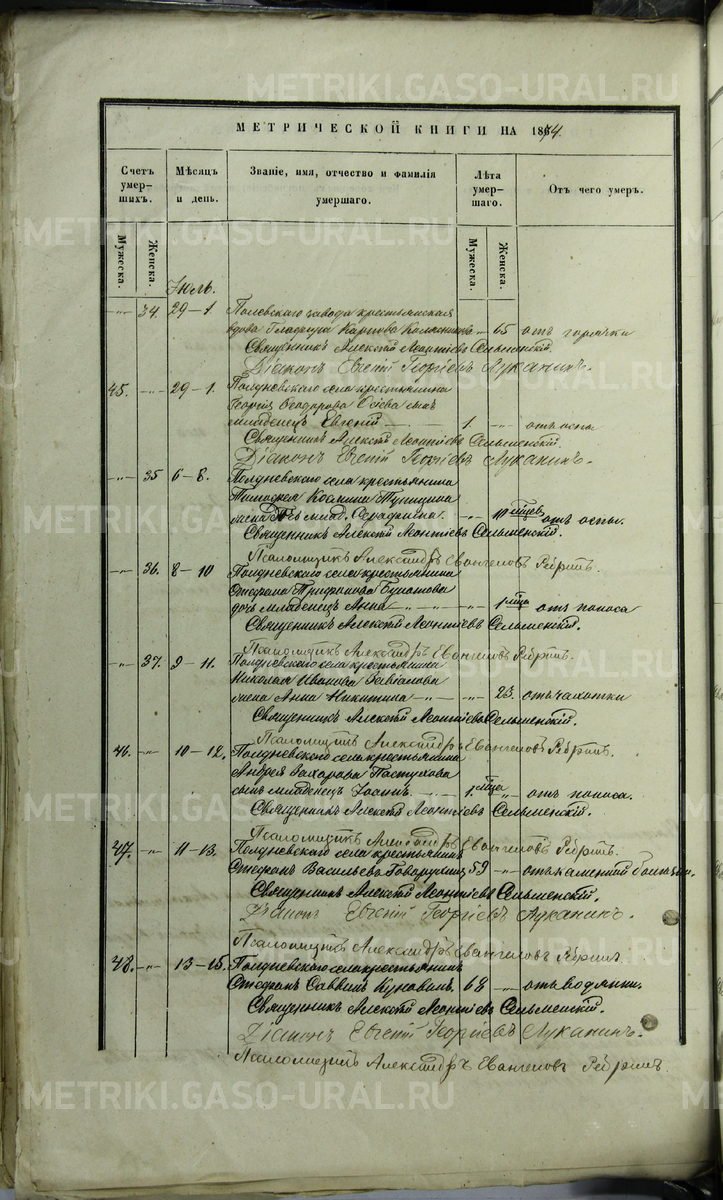 МЕТРИЧЕСКОЙ КНИГИ НА 1864.
Счетъ умер- шихъ.
Мѣсяцъ и день.
Званіе, имя, отчество и фамилія умершаго.
Лѣта умер- шаго.
Отъ чего умеръ.
Мужеска.
Женска.
Мужеска.
Женска.
Іюль.
34. 29–1 Полевскаго завода крестьянская
вдова Карпова 65 отъ горячки
Священникъ Алексѣй Леонтіевъ Сельменскій.
Діаконъ Евгеній Георгіевъ Луканинъ.
45. 29–1. Полдневскаго села крестьянина
Георгія Ѳеодорова сынъ
младенецъ Евгеній 1 отъ оспы
Священникъ Алексѣй Леонтіевъ Сельменскій
Діаконъ Евгеній Георгіевъ Луканинъ.
35 6–8. Полдневскаго села крестьянина
Тимофея Космина
млад. Серафима. 10 мѣсцъ отъ оспы.
Священникъ Алексѣй Леонтіевъ Сельменскій.
Псаломщикъ Александръ Евангеловъ
36. 8–10 Полдневскаго села крестьянина
Стефана Трифонова
дочь младенецъ Анна 1 мѣца отъ поноса
Священникъ Алексѣй Леонтіевъ Сельменскій.
Псаломщикъ Александръ Евангеловъ
37. 9–11. Полдневскаго села крестьянина
Николая Иванова
жена Анна Никитина 23. отъ чахотки
Священникъ Алексѣй Леонтіевъ Сельменскій.
Псаломщикъ Александръ Евангеловъ
46. 10–12. Полдневскаго села крестьянина
Андрея Захарова Пастухова
сынъ младенецъ Іоаннъ. 1. мѣца отъ поноса.
Священникъ Алексѣй Леонтіевъ Сельменскій.
Псаломщикъ Александръ Евангеловъ
47. 11–13. Полдневскаго села крестьянинъ
Стефанъ Васильевъ 59 отъ каменной болѣзни.
Священникъ Алексѣй Леонтіевъ Сельменскій.
Діаконъ Евгеній Георгіевъ Луканинъ.
Псаломщикъ Александръ Евангеловъ
48. 13–15. Полдневскаго села крестьянинъ
Стефанъ Саввинъ 68 отъ водянки.
Священникъ Алексѣй Леонтіевъ Сельменскій.
Діаконъ Евгеній Георгіевъ Луканинъ.
Псаломщикъ Александръ Евангеловъ
METRIKI.GASO-URAL.RU